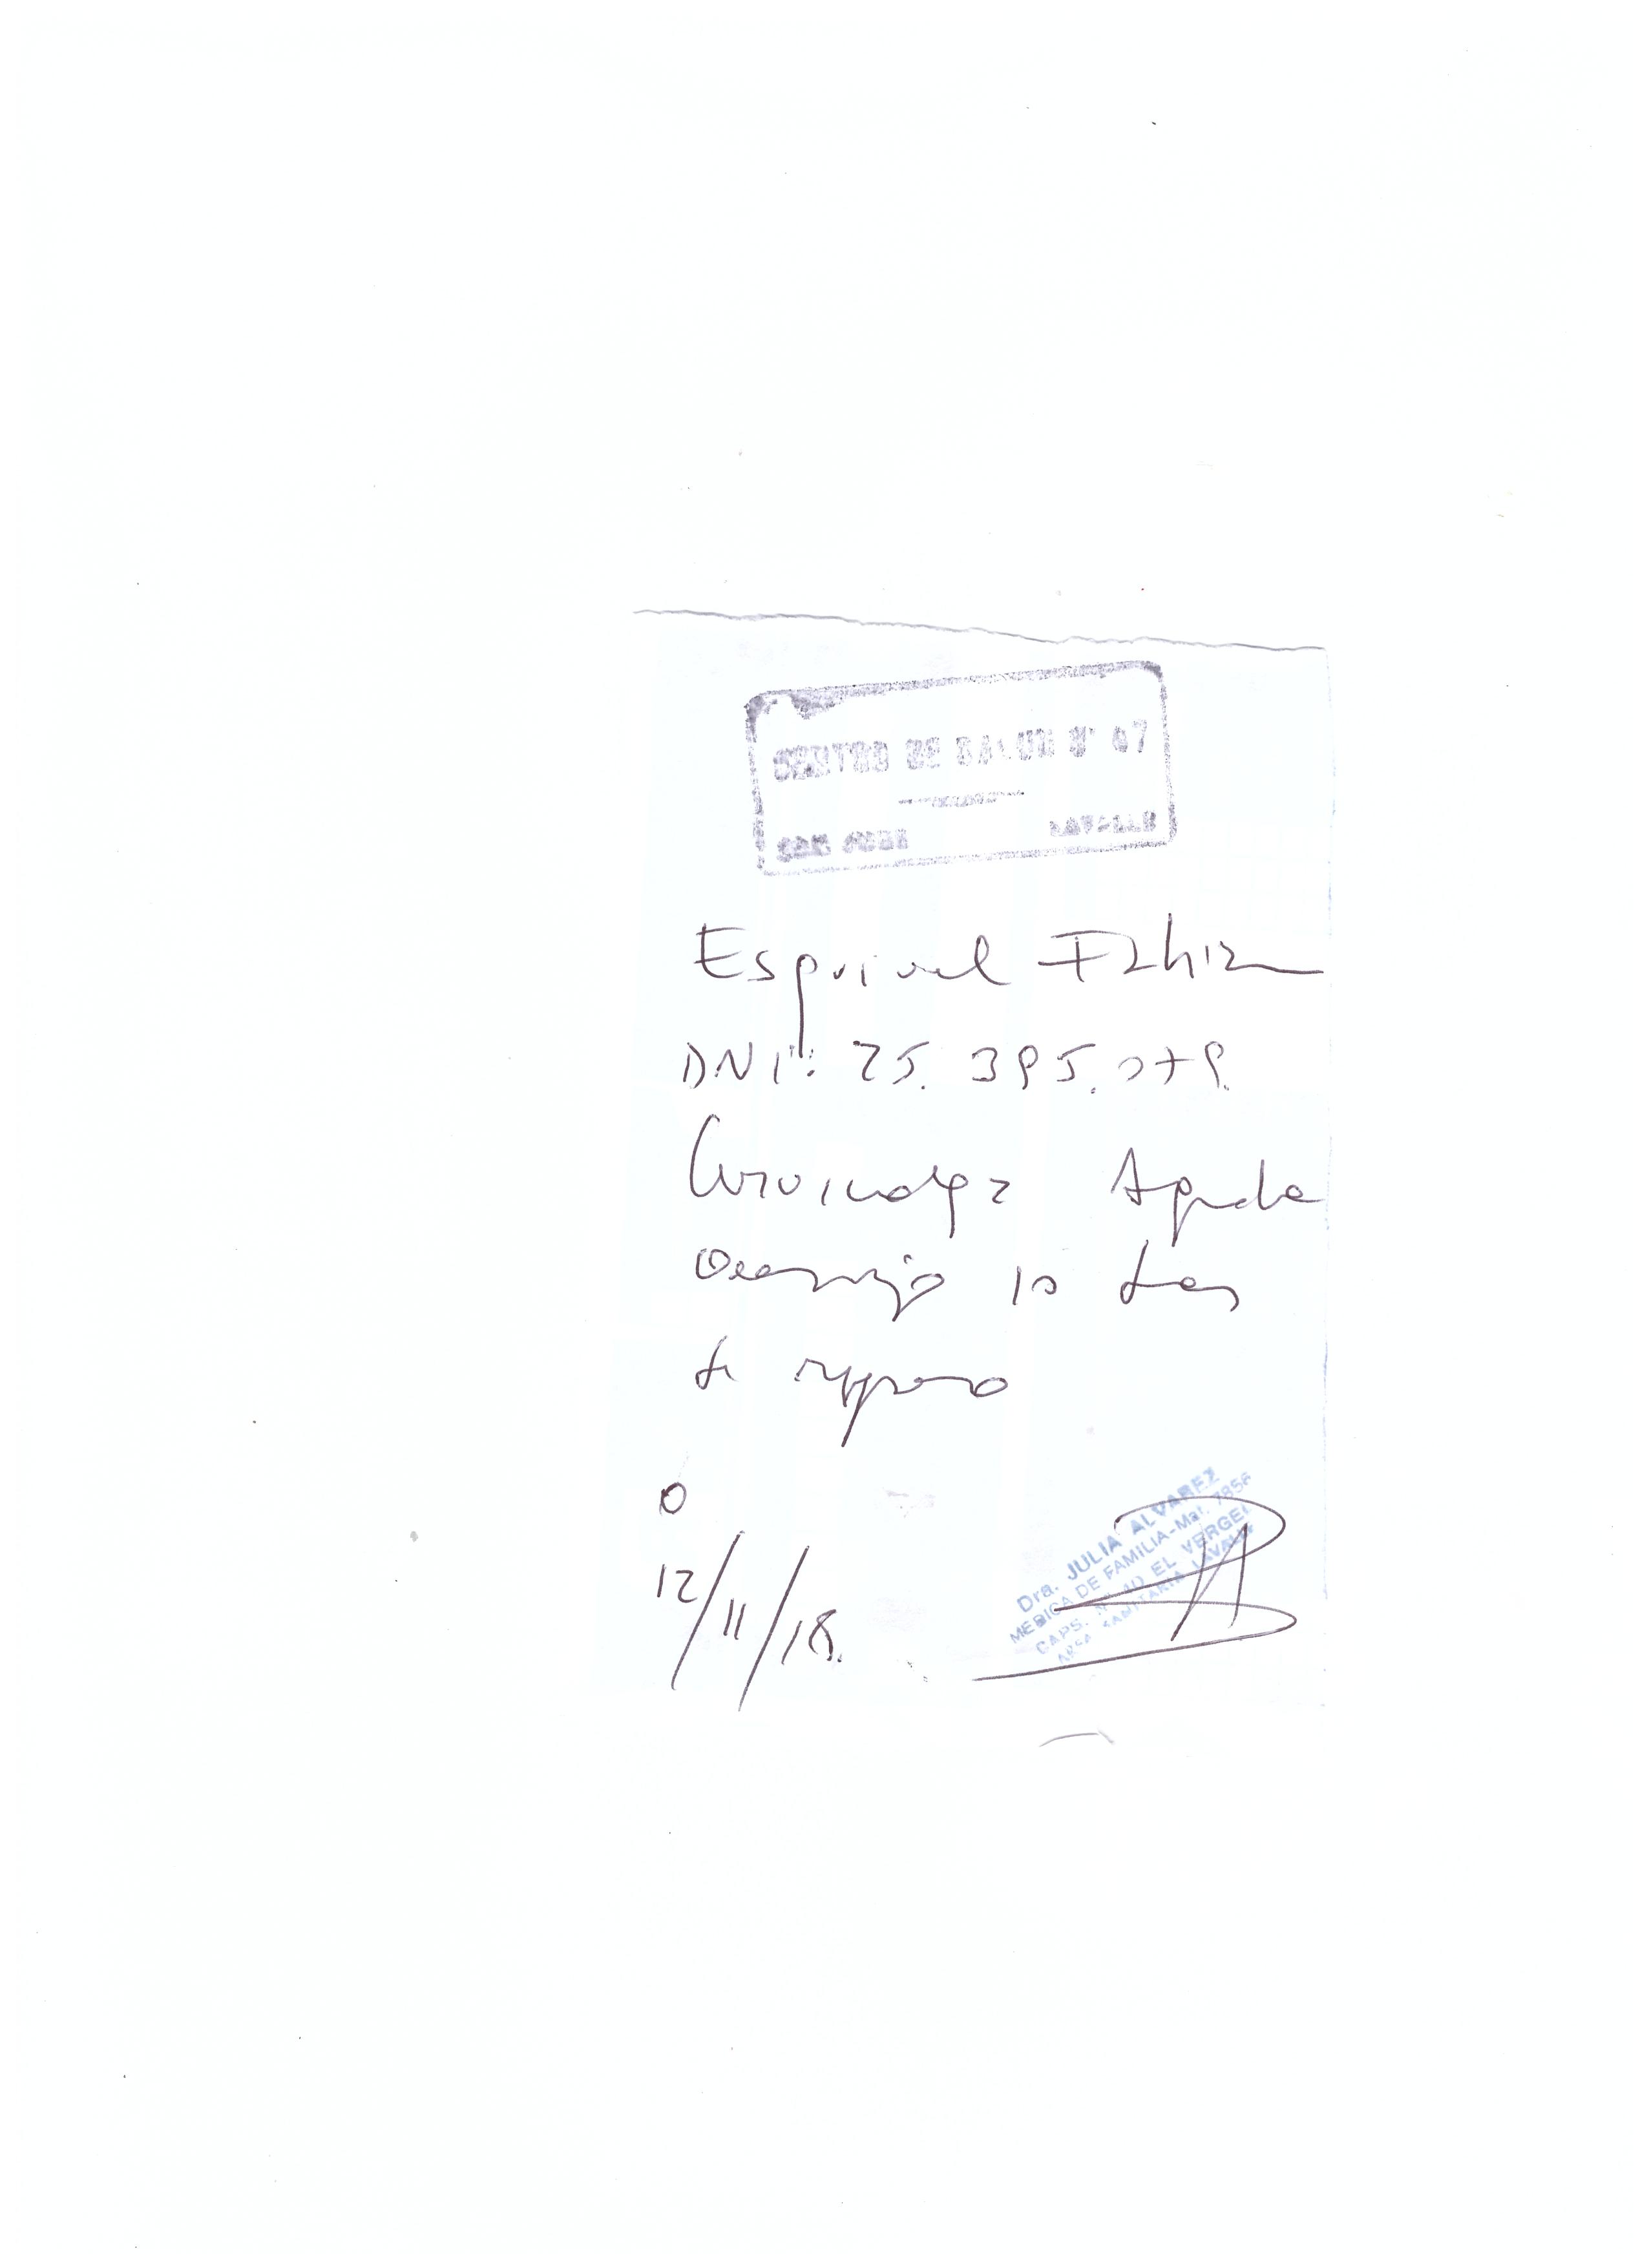 CENTRO DE SALUD Nº 67
SAN JOSE LAVALLE
Esquivel Fabian
DNI: 25.395.079.
Cervicalgia Aguda
Aconsejo 10 días
de reposo
12/11/18.
Dra. JULIA ALVAREZ
MEDICA DE FAMILIA-Mat. 7856
CAPS. EL VERGEL
AREA SANITARIA LAVALLE